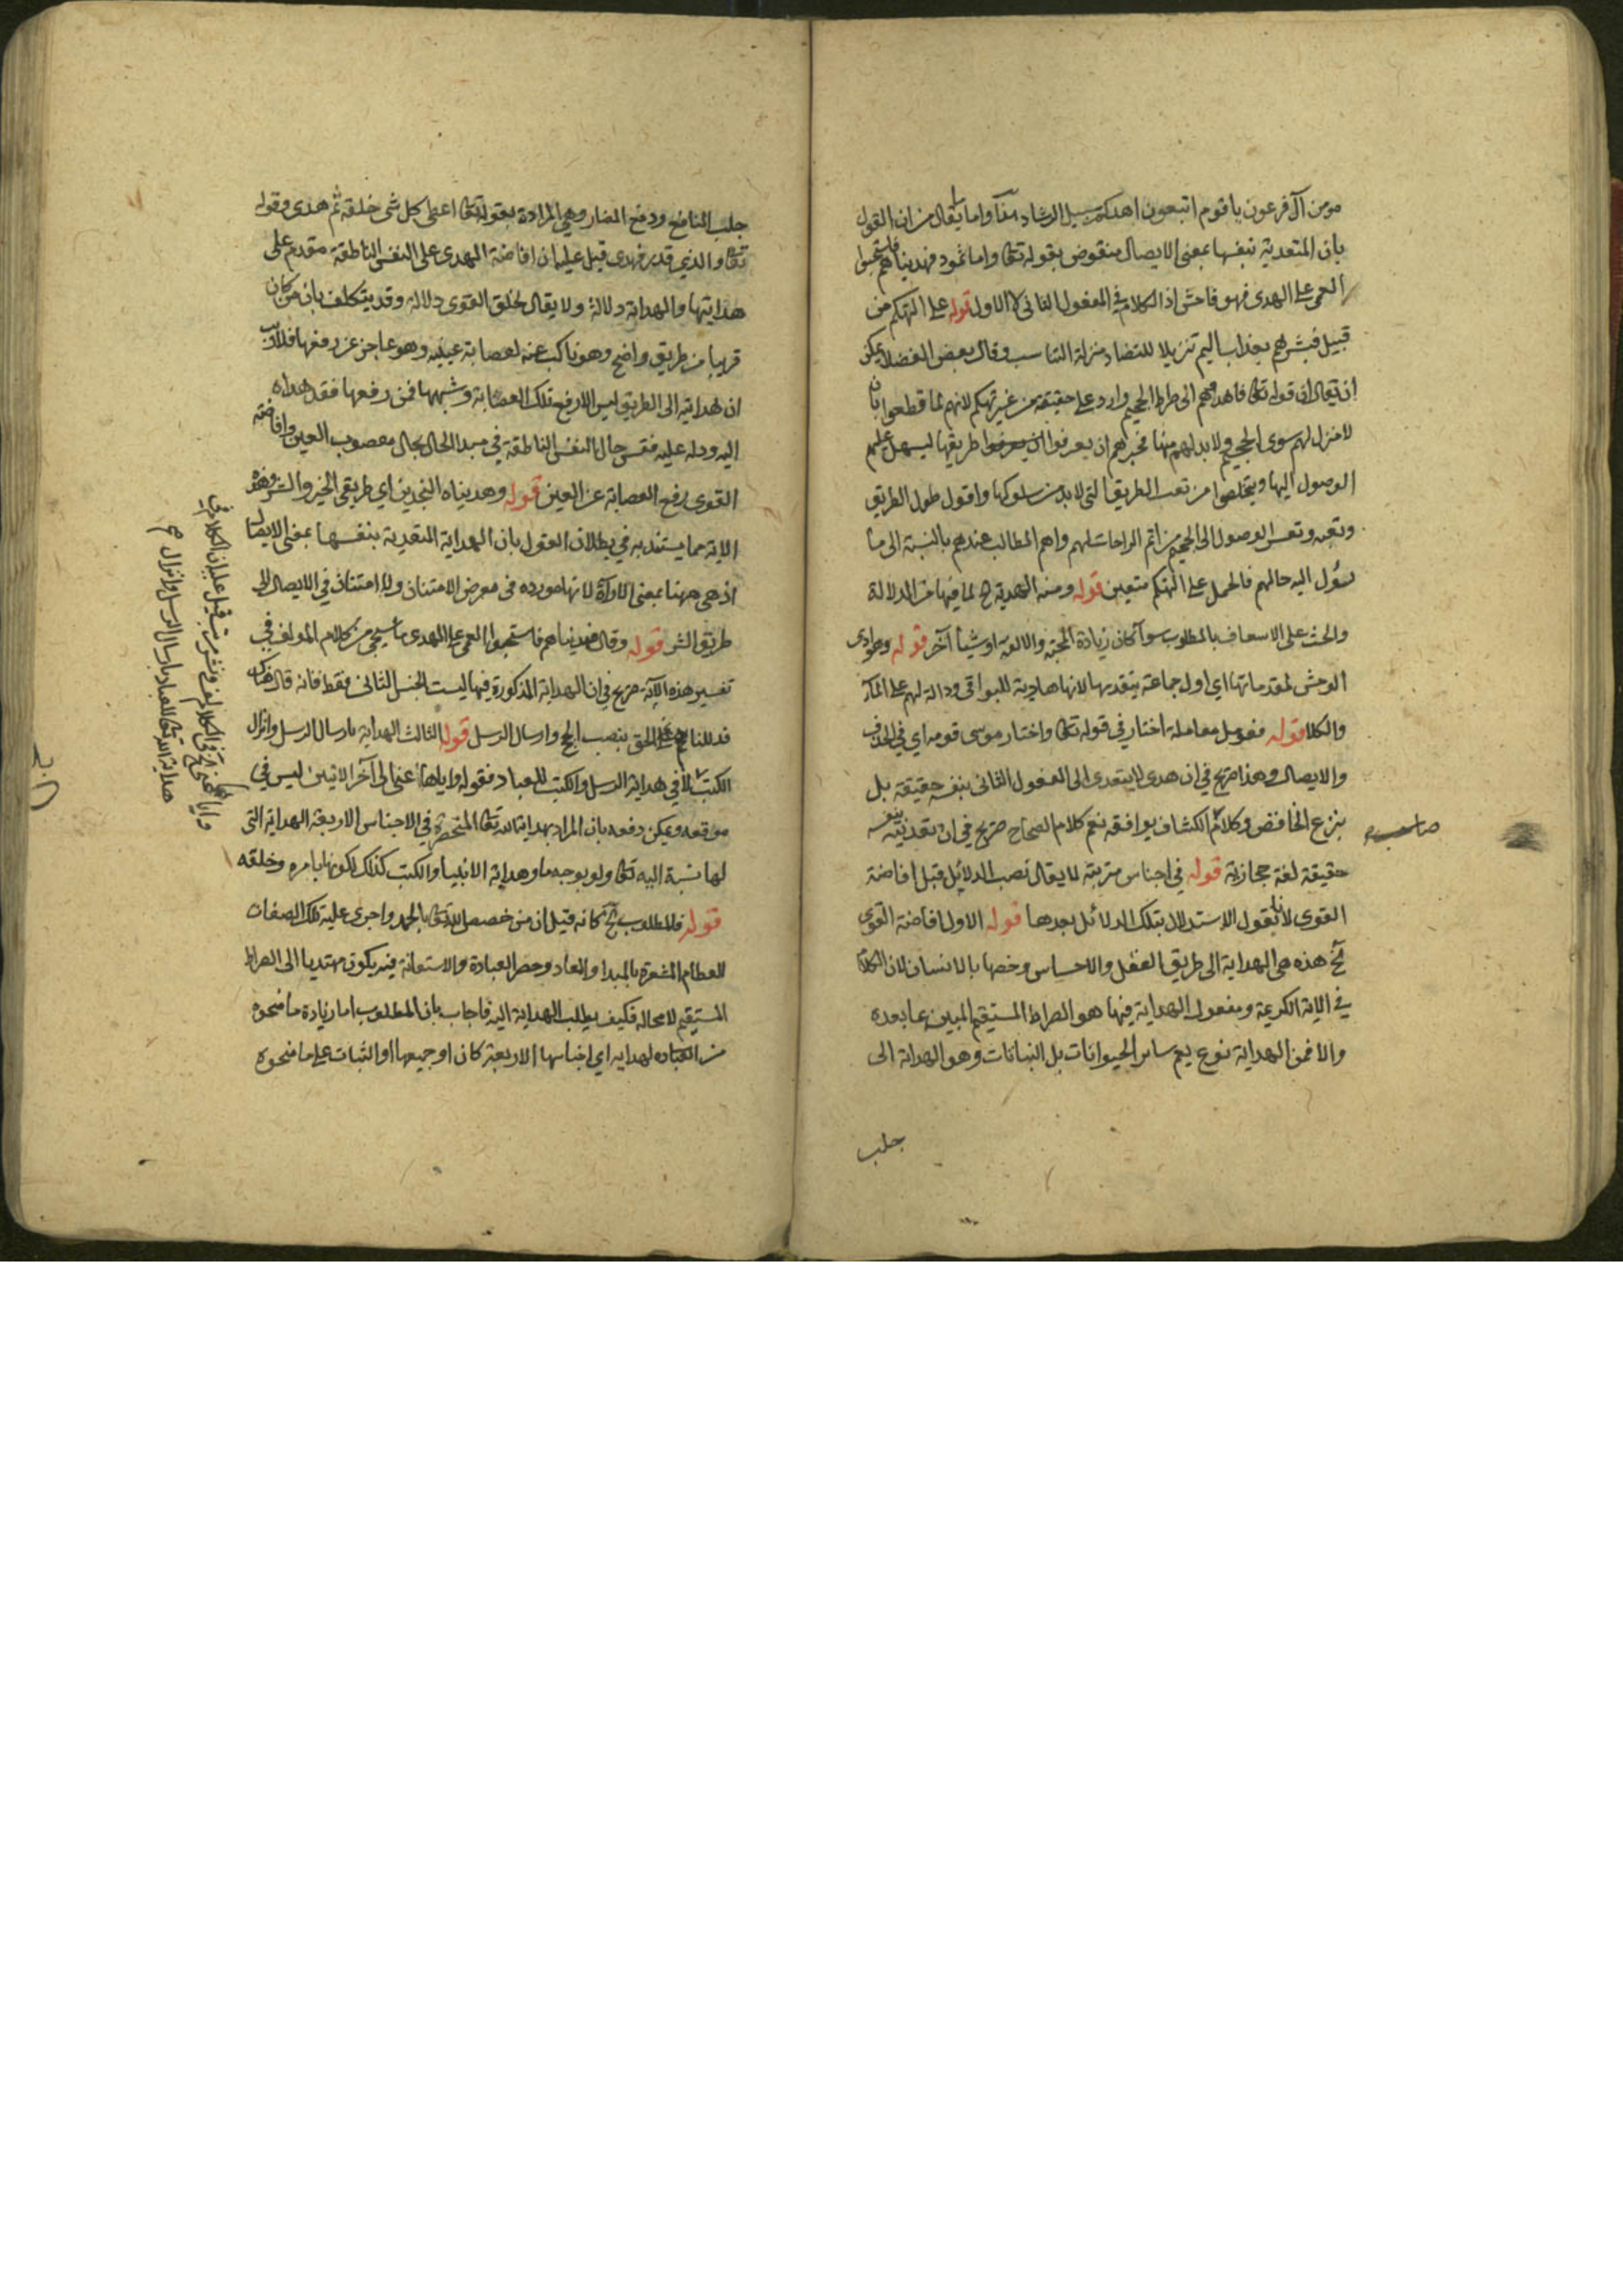 مومن آل فرعون يا قوم اتبعون اهدكم سبيل الرشاد واما ما يقال من ان القول
بان المتعدية بنفسها بمعنى الايصال منقوض بقوله تعالى واما ثمود فهديناهم فاستحبوا
العمى على الهدى فهو فاحش اذ الكلام في المفعول الثاني لا الاول قوله على التهكم من
قبيل فبشرهم بعذاب اليم تنزيلا للتضاد منزلة التناسب وقال بعض الفضلا يمكن
ان يقال ان قوله تعالى فاهدوهم الى صراط الجحيم وارد على حقيقته من غير تهكم لانهم لما قطعوا بان
لا منزل لهم سوى الجحيم ولا بد لهم منها فخبرهم ان يعرفوا طريقها ليسهل عليهم
الوصول اليها ويتخلصوا من تعب الطريق التي لا بد من سلوكها واقول طول الطريق
وتعبه وتعسر الوصول الى الجحيم من اتم الراحات لهم واهم المطالب عندهم بالنسبة الى ما
يسؤل اليه حالهم فالحمل على التهكم متعين قوله ومنه الهدية لما فيها من الدلالة
والحث على الاسعاف بالمطلوب سوآ كان زيادة المحبة والالفة او شيأ آخر قوله وهوادى
الوحش لمقدماتها اي اول جماعة يتقدمها لانها هادية للبواقي ودالة لهم على المآء
والكلا قوله فعومل معاملة اختار في قوله تعالى واختار موسى قومه اي في الحذف
والايصال وهذا صريح في ان هدى لا يتعدى الى المفعول الثاني بنفسه حقيقة بل
بنزع الخافض وكلام الكشاف يوافقه نعم كلام الصحاح صريح في ان تعديته بنفسه
حقيقة لغة حجازية قوله في اجناس مترتبة لا يقال نصب الدلائل قبل افاضة
القوى لانا نقول الاستدلال بتلك الدلائل بعدها قوله الاول افاضة القوى
آخ هذه هي الهداية الى طريق العقل والاحساس وخصها بالانسان لان الكلام
في الاية الكريمة ومفعول الهداية فيها هو الصراط المستقيم المبين بما بعده
والا فمن الهداية نوع يعم ساير الحيوانات بل النباتات وهو الهداية الى
جلب
جلب المنافع ودفع المضار وهي المرادة بقوله تعالى اعطى كل شئ خلقه ثم هدى وقوله
تعالى والذي قدر فهدى قيل عليه ان افاضة الهدى على النفس الناطقة مقدم على
هدايتها والهداية دلالة ولا يقال لخلق القوى دلالة وقد يتكلف بان من كان
قريبا من طريق واضح وهو ناكب عنه لعصابة بعينيه وهو عاجز عن رفعها فلا ريب
ان هدايته الى الطريق ليس الا رفع تلك العصابة وشبهها فمن رفعها فقد هداه
اليه ودله عليه فقس حال النفس الناطقة في مبدا الحال بحال معصوب العين وافاضة
القوى رفع العصابة عن العين قوله وهديناه النجدين اي طريقي الخير والشر وهذه
الاية مما يستند به في بطلان القول بان الهداية المتعدية بنفسها بمعنى الايصال
اذ هي ههنا بمعنى الارآة لانها مورده في معرض الامتنان ولا امتنان في الايصال الى
طريق الشر قوله وقال فهديناهم فاستحبوا العمى على الهدى ما سيجئ من كلام المولف في
تفسير هذه الآية صريح في ان الهداية المذكورة فيها ليست الجنس الثاني فقط فانه قال هناك
فدللناهم على الحق بنصب الحجج وارسال الرسل قوله الثالث الهداية بارسال الرسل وانزال
الكتب لا في هداية الرسل والكتب للعباد فقوله واياها عنى الى آخر الاثنين ليس في
موقعه ويمكن دفعه بان المراد بهداية الله تعالى المنحصرة في الاجناس الاربعة الهداية التي
لها نسبة اليه تعالى ولو بوجه ما وهداية الانبيا والكتب كذلك لكونها بامره وخلقه
قوله فالمطلوب آخ كانه قيل ان من خصص الله تعالى بالحمد واجرى عليه تلك الصفات
العظام المشعرة بالمبدا والمعاد وحصر العبادة والاستعانة فيه يكون مهتديا الى الصراط
المستقيم لا محالة فكيف يطلب الهداية اليه فاجاب بان المطلوب اما زيادة ما منحوه
من الهداية اي اجناسها الاربعة كان او جميعها او الثبات على ما منحوه
هداية الله تعالى للعباد بارسال الرسل وانزال